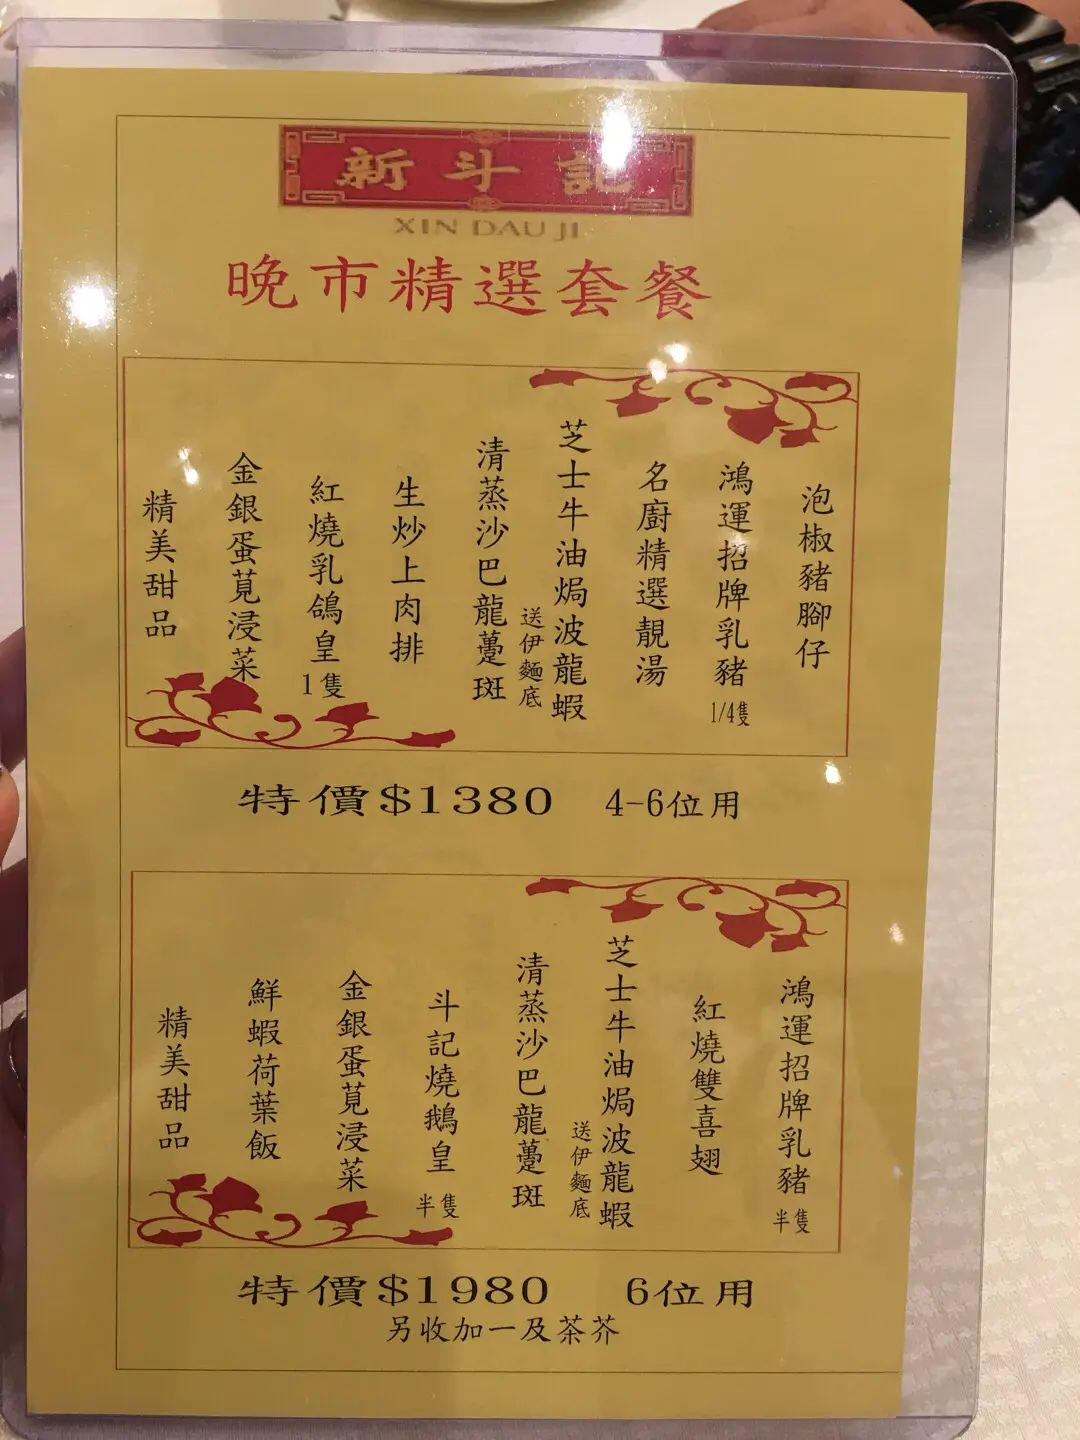 新斗記
XIN DAU JI
晚市精選套餐
泡椒豬腳仔
鴻運招牌乳豬 1/4隻
名廚精選靚湯
芝士牛油焗波龍蝦
送伊麵底
清蒸沙巴龍躉斑
生炒上肉排
紅燒乳鴿皇 1隻
金銀蛋莧浸菜
精美甜品
特價$1380 4-6位用
鴻運招牌乳豬 半隻
紅燒雙喜翅
芝士牛油焗波龍蝦
送伊麵底
清蒸沙巴龍躉斑
斗記燒鵝皇 半隻
金銀蛋莧浸菜
鮮蝦荷葉飯
精美甜品
特價$1980 6位用
另收加一及茶芥